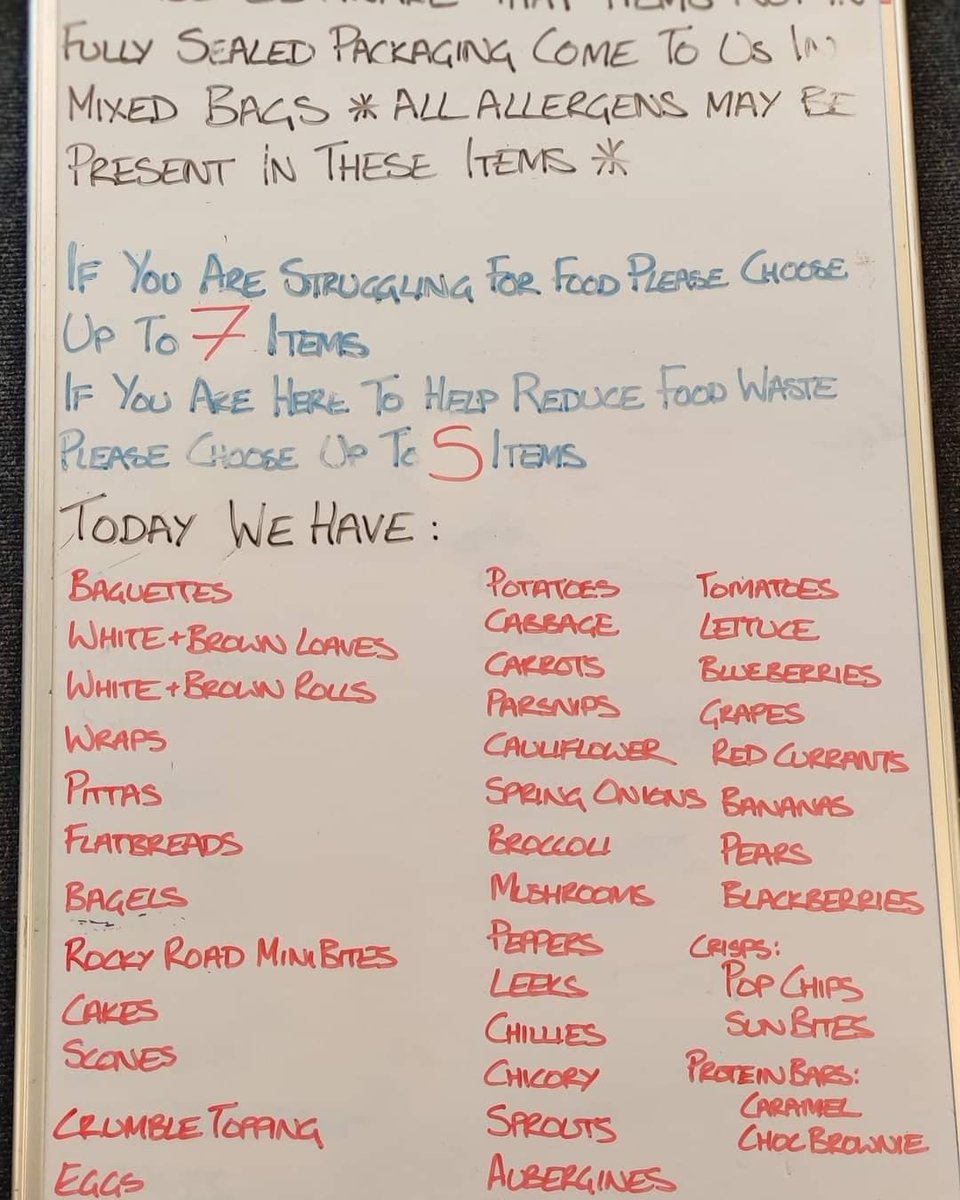 THAT ITEMS NOT IN
FULLY SEALED PACKAGING COME TO US IN
MIXED BAGS * ALL ALLERGENS MAY BE
PRESENT IN THESE ITEMS *
IF YOU ARE STRUGGLING FOR FOOD PLEASE CHOOSE
UP TO 7 ITEMS
IF YOU ARE HERE TO HELP REDUCE FOOD WASTE
PLEASE CHOOSE UP TO 5 ITEMS
TODAY WE HAVE:
BAGUETTES
WHITE + BROWN LOAVES
WHITE + BROWN ROLLS
WRAPS
PITTAS
FLATBREADS
BAGELS
ROCKY ROAD MINI BITES
CAKES
SCONES
CRUMBLE TOPPING
EGGS
POTATOES
CABBAGE
CARROTS
PARSNIPS
CAULIFLOWER
SPRING ONIONS
BROCCOLI
MUSHROOMS
PEPPERS
LEEKS
CHILLIES
CHICORY
SPROUTS
AUBERGINES
TOMATOES
LETTUCE
BLUEBERRIES
GRAPES
RED CURRANTS
BANANAS
PEARS
BLACKBERRIES
CRISPS:
POP CHIPS
SUN BITES
PROTEIN BARS:
CARAMEL
CHOC BROWNIE